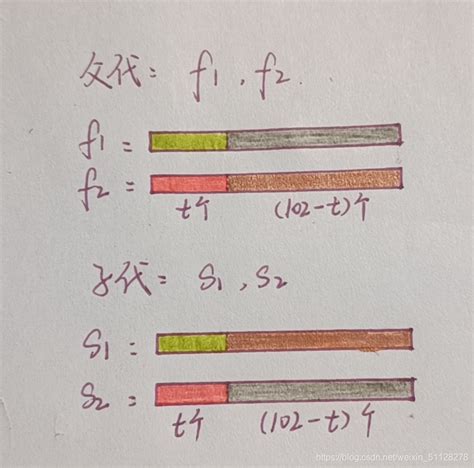 父代: f1, f2.
f1 =
f2 =
t个 (102-t)个
子代: S1, S2
S1 =
S2 =
t个 (102-t)个
https://blog.csdn.net/weixin_51128278